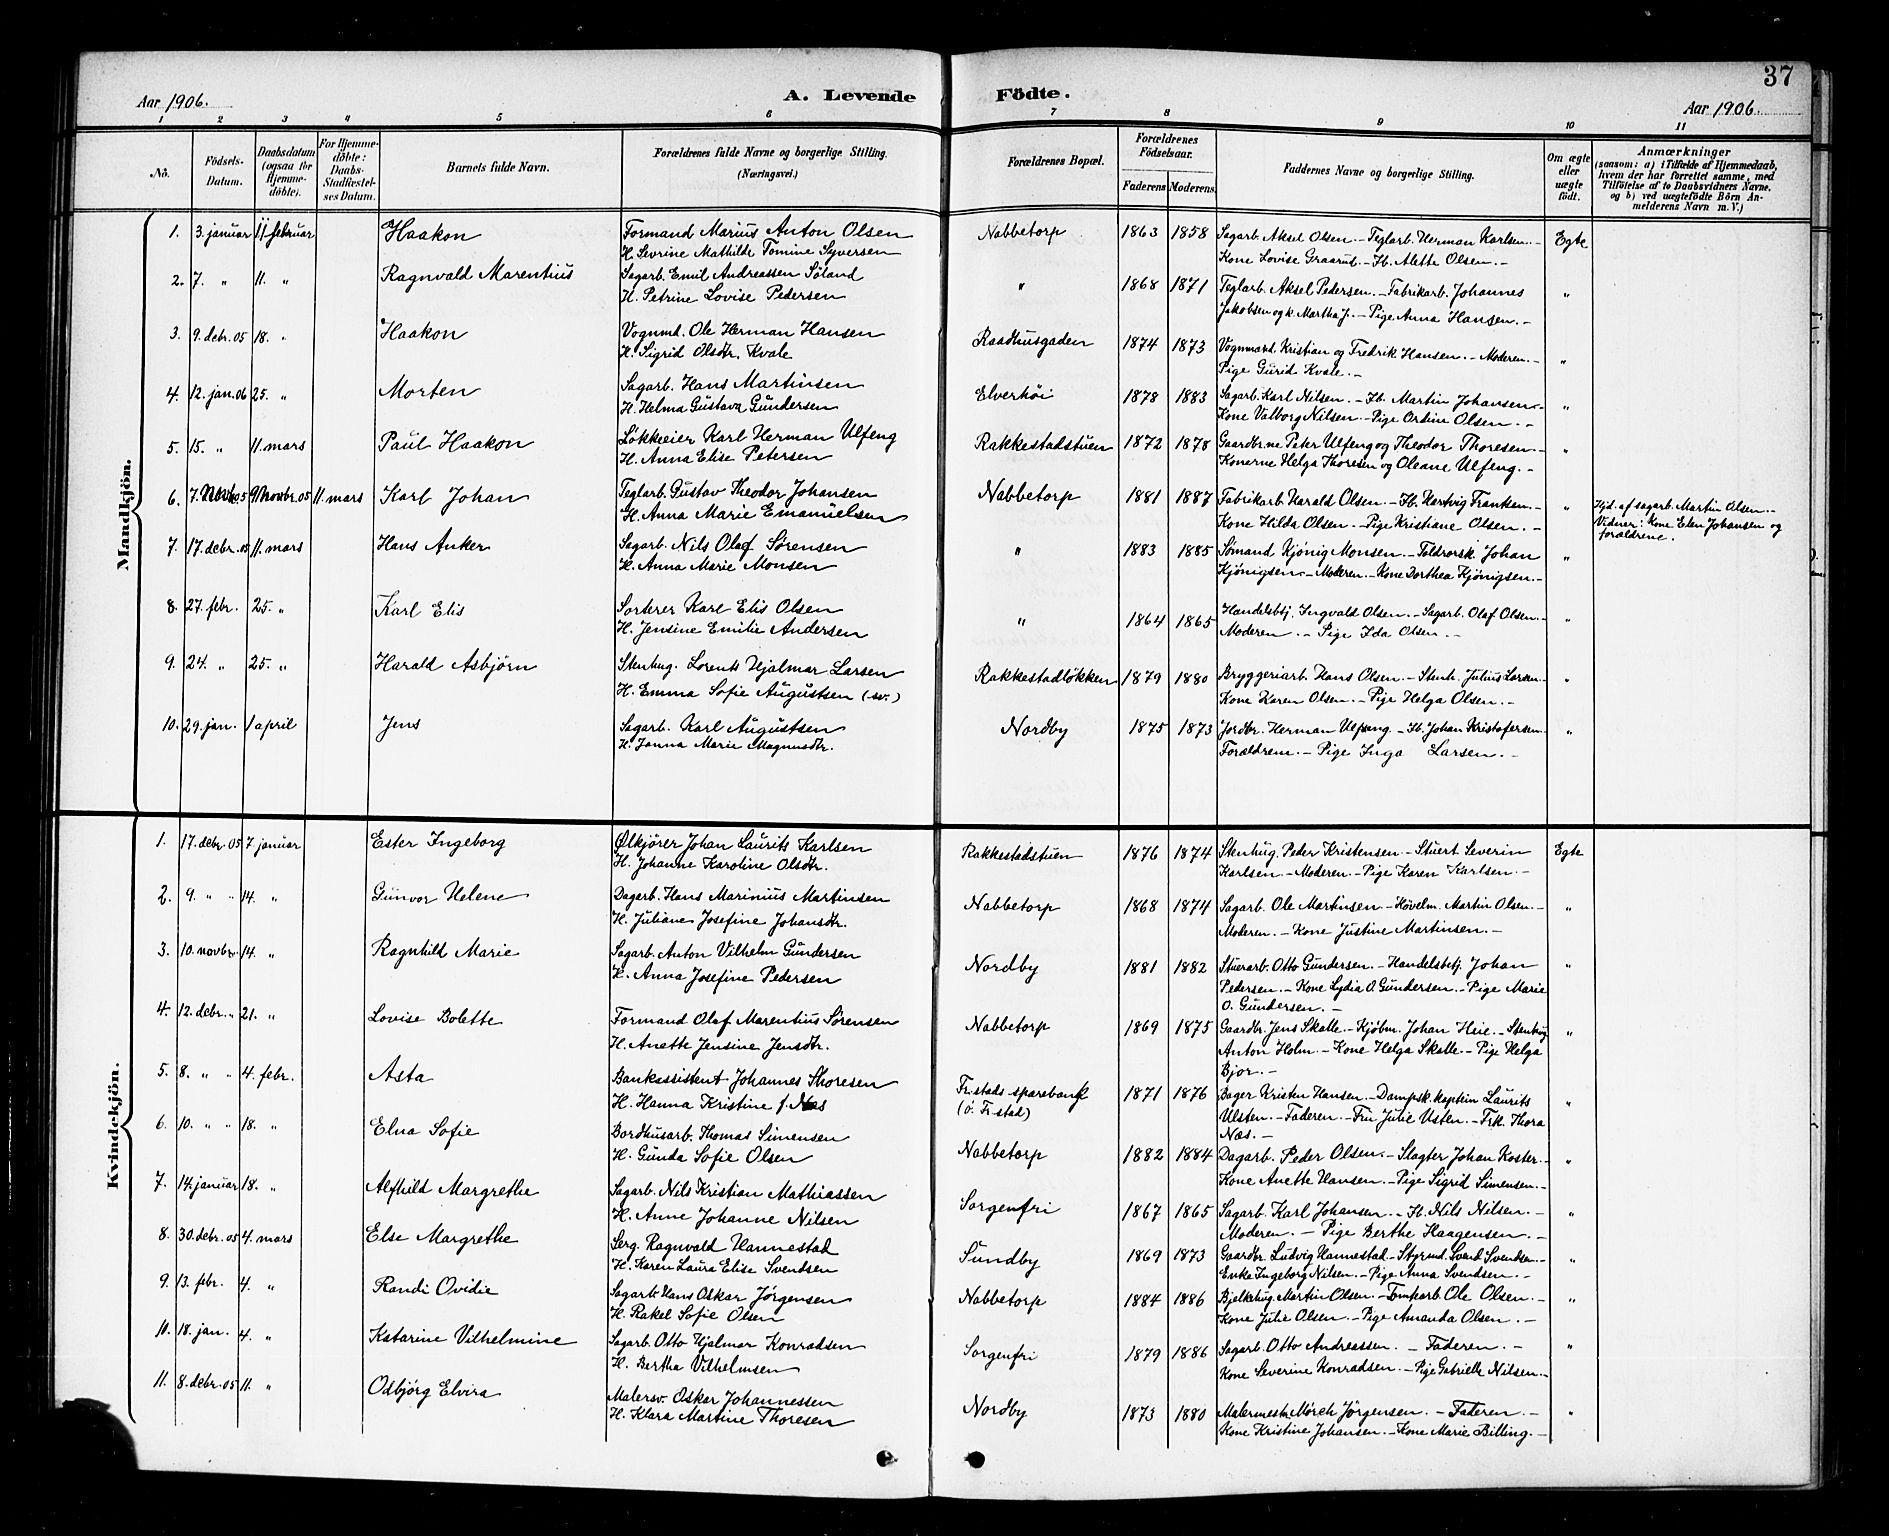 37
Aar 1906. A. Levende Födte. Aar 1906.
1 2 3 4 5 6 7 8 9 10 11
No. Födsels-Datum. Daabsdatum (ogsaa for Hjemme-döbte). For Hjemme-döbte: Daabs-Stadfæstel-ses Datum. Barnets fulde Navn. Forældrenes fulde Navne og borgerlige Stilling. (Næringsvei.) Forældrenes Bopæl. Forældrenes Födselsaar. Faderens Moderens. Faddernes Navne og borgerlige Stilling. Om ægte eller uægte födt. Anmærkninger (saasom: a) i Tilfælde af Hjemmedaab, hvem der har forrettet samme, med Tilföielse af to Daabsvidners Navne. og b) ved uægtefödte Börn An-melderens Navn m. V.)
Mandkjön.
1. 3. januar 11 februar Haakon Formand Marius Anton Olsen Nabbetorp 1863 1858 Sagarb. Aksel Olsen. - Teglarb. Herman Karlsen. - Egte
H. Sevrine Mathilde Tomine Syversen Kone Lovise Graarud. - H. Alette Olsen. -
2. 7. " 11. " Ragnvald Marentius Sagarb. Emil Andreassen Söland " 1868 1871 Teglarb. Aksel Pedersen. - Fabrikarb. Johannes "
H. Petrine Lovise Pedersen Jakobsen og k. Martha J. - Pige Anna Hansen. -
3. 9. debr. 05 18. " Haakon Vognmd. Ole Herman Hansen Raadhusgaden 1874 1873 Vognmænd. Kristian og Fredrik Hansen. - Moderen. - "
H. Sigrid Olsdtr. Kvale Pige Gurid Kvale. -
4. 12. jan. 06 25. " Morten Sagarb. Hans Martinsen Elverhöi 1878 1883 Sagarb. Karl Nilsen. - H. Martin Johansen. - "
H. Helma Gustava Gundersen Kone Valborg Nilsen. - Pige Ordine Olsen. -
5. 15. " 11. mars Paul Haakon Lökkeeier Karl Herman Ulfeng Rakkestadstuen 1872 1878 Gaardbr.ne Peter Ulfeng og Theodor Thoresen. - "
H. Anna Elise Petersen Konerne Helga Thoresen og Oleane Ulfeng. -
6. 7. Novbr. 05 9 Novbr. 05 11. mars Karl Johan Teglarb. Gustav Theodor Johansen Nabbetorp 1881 1887 Fabrikarb. Harald Olsen. - H. Hartvig Franken. - " Hjd. af sagarb. Martin Olsen. -
H. Anna Marie Emanuelsen Kone Hilda Olsen. - Pige Kristiane Olsen. - Vidner: Kone Elen Johansen og
forældrene.
7. 17. debr. 05 11. mars Hans Anker Sagarb. Nils Olaf Sørensen " 1883 1885 Sømand Kjönig Monsen. - Toldrorsk. Johan "
H. Anna Marie Monsen Kjönigsen. - Moderen. - Kone Dorthea Kjönigsen. -
8. 27. febr. 25. " Karl Elis Sorterer Karl Elis Olsen " 1864 1865 Handelsbtj. Ingvald Olsen. - Sagarb. Olaf Olsen. - "
H. Jensine Emilie Andersen Moderen. - Pige Ida Olsen. -
9. 24. " 25. " Harald Asbjörn Stenhug. Lorents Hjalmar Larsen Rakkestadlökken 1879 1880 Bryggeriarb. Hans Olsen. - Stenh. Julius Larsen. - "
H. Emma Sofie Augustsen (sv.) Kone Karen Olsen. - Pige Helga Olsen. -
10. 29. jan. 1 april Jens Sagarb. Karl Augustsen Nordby 1875 1873 Jordbr. Herman Ulfeng - H. Johan Kristofersen. "
H. Janna Marie Magnusdtr. Forældrene. - Pige Inga Larsen. -
Kvindekjön.
1. 17. debr. 05 7. januar Ester Ingeborg Ölkjörer Johan Laurits Karlsen Rakkestadstuen 1876 1874 Stenhug. Peder Kristensen - Stuert Severin Egte
H. Johanne Karoline Olsdtr. Karlsen - Moderen. - Pige Karen Karlsen. -
2. 9. " " 14. " Gunvor Helene Dagarb. Hans Marinius Martinsen Nabbetorp 1868 1874 Sagarb. Ole Martinsen - Hövelm. Martin Olsen. - "
H. Juliane Josefine Johansdtr. Moderen. - Kone Justine Martinsen. -
3. 10. novbr. 14. " Ragnhild Marie Sagarb. Anton Vilhelm Gundersen Nordby 1881 1882 Stuerarb. Otto Gundersen. - Handelsbetj. Johan "
H. Anna Josefine Pedersen Pedersen. - Kone Lydia O. Gundersen. - Pige Marie
O. Gundersen. -
4. 12. debr. " 21. " Lovise Bolette Formand Olaf Marentius Sørensen Nabbetorp 1869 1875 Gaardbr. Jens Skalle. - Kjøbm. Johan Heie. - Stenhug "
H. Anette Jensine Jensdtr. Anton Holm. - Kone Helga Skalle. - Pige Helga
Bjor. -
5. 8. " " 4. febr. Asta Bankassistent Johannes Thoresen Fr.stads sparebank 1871 1876 Bager Kristen Hansen. - Dampsk. kaptein Laurits "
H. Hanna Kristine f. Næs (ö. Fr.stad) Ulsten. - Faderen. - Fru Julie Usten. - Frk. Thora
Næs. -
6. 10. " " 18. " Elna Sofie Bordhusarb. Thomas Simensen Nabbetorp 1882 1884 Dagarb. Peder Olsen. - Slagter Johan Koster. - "
H. Gunda Sofie Olsen Kone Anette Hansen. - Pige Sigrid Simensen. -
7. 14. januar 18. " Alfhild Margrethe Sagarb. Nils Kristian Mathiassen Sorgenfri 1867 1865 Sagarb. Karl Johansen. - H. Nils Nilsen. - "
H. Anne Johanne Nilsen Moderen. - Pige Berthe Haagensen. -
8. 30. debr. 05 4. mars Else Margrethe Serg. Ragnvald Hannestad Sundby 1869 1873 Gaardbr. Ludvig Hannestad. - Styrmd. Svend Svendsen. - "
H. Karen Laura Elise Svendsen Enke Ingeborg Nilsen. - Pige Anna Svendsen. -
9. 13. febr. 4. " Randi Ovidie Sagarb. Hans Oskar Jørgensen Nabbetorp 1884 1886 Bjelkehug. Martin Olsen. - Tomtarb. Ole Olsen. - "
H. Rakel Sofie Olsen Kone Julie Olsen. - Pige Amanda Olsen. -
10. 18. jan. 4. " Katarine Vilhelmine Sagarb. Otto Hjalmar Konradsen Sorgenfri 1879 1886 Sagarb. Otto Andreassen. - Faderen. - "
H. Bertha Vilhelmsen Kone Severine Konradsen. - Pige Gabrielle Nilsen. -
11. 8. debr. 05 11. " Odbjörg Elvira Malersv. Oskar Johannessen Nordby 1873 1880 Malermester Mörch Jørgensen. - Faderen. - "
H. Klara Martine Thoresen Kone Kristine Johansen. - Kone Marie Billing. -